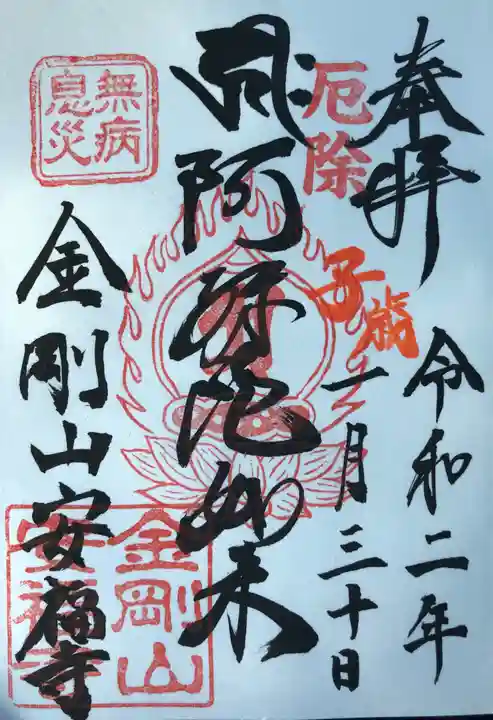 奉拝
令和二年
厄除
子歳
一月三十日
阿弥陀如来
無病
息災
金剛山安福寺
金剛山
安福寺